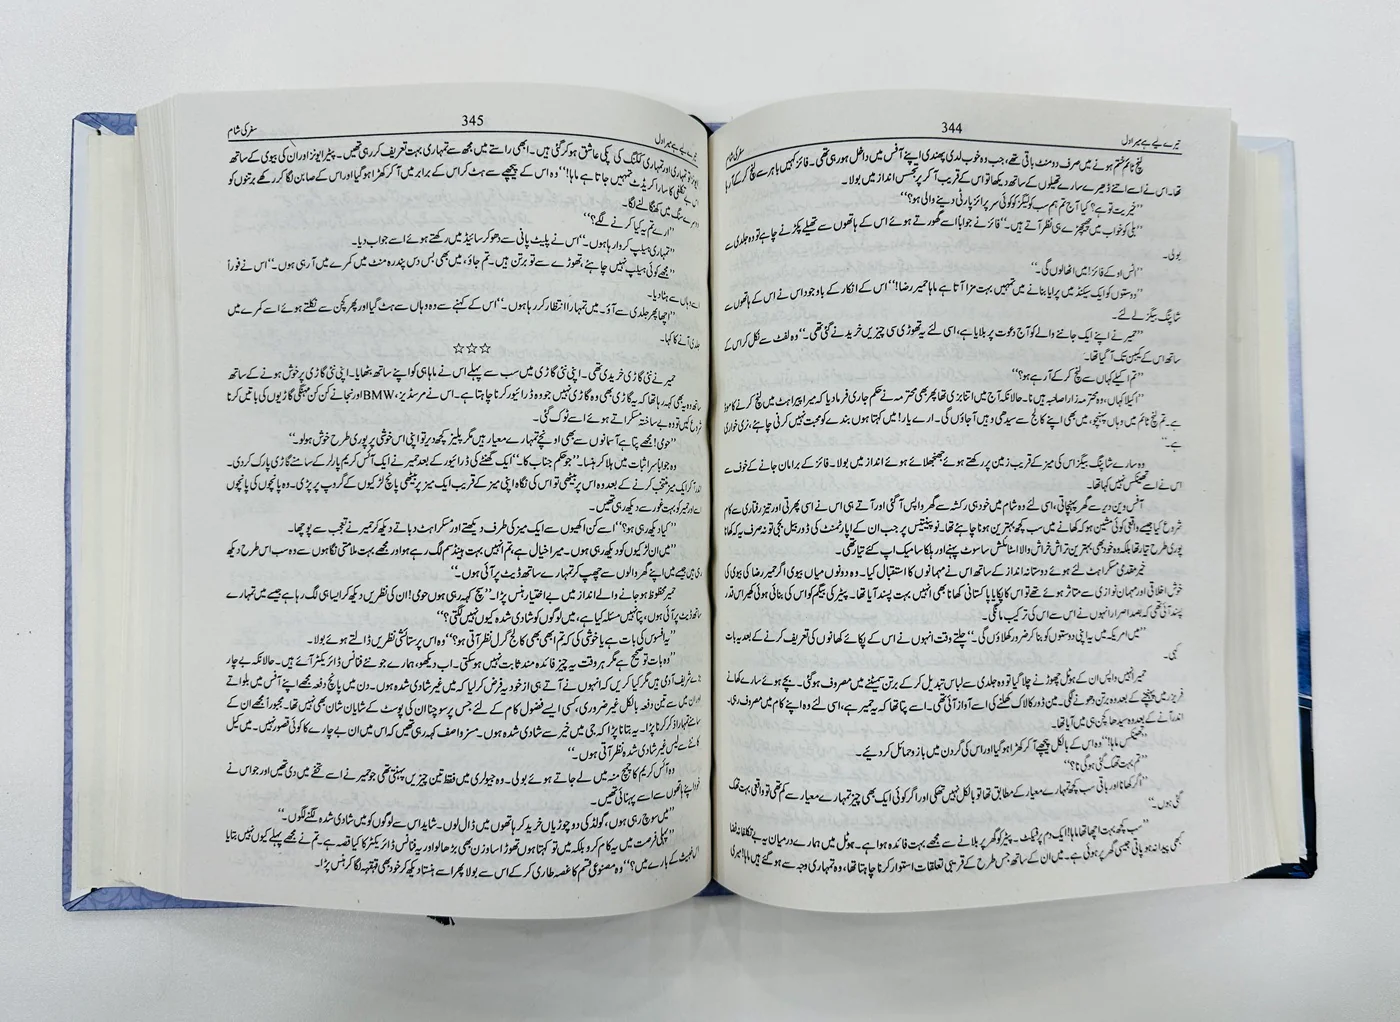 تیرے لیے ہے میرا دل
344
سفر کی شام
لنچ ٹائم ختم ہونے میں صرف دو منٹ باقی تھے، جب وہ خوب لدی پھندی اپنے آفس میں داخل ہو رہی تھی۔ فائز کہیں باہر سے لنچ کر کے آ رہا
تھا۔ اس نے اسے اتنے ڈھیر سارے تھیلوں کے ساتھ دیکھا تو اس کے قریب آ کر پر تجسس انداز میں بولا۔
’’خیریت تو ہے؟ کیا آج تم ہم سب کولیگز کو کوئی سرپرائز پارٹی دینے والی ہو؟‘‘
’’بلی کو خواب میں چھیچھڑے ہی نظر آتے ہیں۔‘‘ فائز نے جواباً اسے گھورتے ہوئے اس کے ہاتھوں سے تھیلے پکڑنے چاہے تو وہ جلدی سے
بولی۔
’’انس او کے فائز! میں اٹھا لوں گی۔‘‘
’’دوستوں کو ایک سیکنڈ میں پرایا بنانے میں تمہیں بہت مزا آتا ہے ماہا حمیر رضا!‘‘ اس کے انکار کے باوجود اس نے اس کے ہاتھوں سے
شاپنگ بیگز لے لئے۔
’’حمیر نے اپنے ایک جاننے والے کو آج دعوت پر بلایا ہے، اسی لئے یہ تھوڑی سی چیزیں خریدنے گئی تھی۔‘‘ وہ لفٹ سے نکل کر اس کے
ساتھ اس کے کیبن تک آ گیا تھا۔
’’تم اکیلے کہاں سے لنچ کر کے آ رہے ہو؟‘‘
’’اکیلا کہاں، وہ محترمہ زارا صاحبہ ہیں نا۔ حالانکہ آج میں اتنا بزی تھا پھر بھی محترمہ نے حکم جاری فرما دیا کہ میرا پیزا ہٹ میں لنچ کرنے کا موڈ
ہے۔ تم لنچ ٹائم میں وہاں پہنچو، میں بھی اپنے کالج سے سیدھی وہیں آ جاؤں گی۔ ارے یار! میں کہتا ہوں بندے کو محبت نہیں کرنی چاہئے، نری خواری
ہے۔‘‘
وہ سارے شاپنگ بیگز اس کی میز کے قریب زمین پر رکھتے ہوئے جھنجھلائے ہوئے انداز میں بولا۔ فائز کے برا مان جانے کے خوف سے
اس نے اسے تھینکس نہیں کہا تھا۔
آفس وین دیر سے گھر پہنچاتی، اسی لئے وہ شام میں خود ہی رکشہ سے گھر واپس آ گئی اور آتے ہی اس نے اسی پھرتی اور تیز رفتاری سے کام
شروع کیا جیسے واقعی کوئی مشین ہو کہ کھانے میں سب کچھ بہترین ہونا چاہئے تھا۔ نو پینتیس پر جب ان کے اپارٹمنٹ کی ڈور بیل بجی تو نہ صرف یہ کہ کھانا
پوری طرح تیار تھا بلکہ وہ خود بھی بہترین تراش خراش والا اسٹائلش سا سوٹ پہنے اور ہلکا سا میک اپ کئے تیار تھی۔
خیر مقدمی مسکراہٹ لئے ہوئے دوستانہ انداز کے ساتھ اس نے مہمانوں کا استقبال کیا۔ وہ دونوں میاں بیوی اگر حمیر رضا کی بیوی کی
خوش اخلاقی اور مہمان نوازی سے متاثر ہوئے تھے تو اس کا پکایا پاکستانی کھانا بھی انہیں بہت پسند آیا تھا۔ پیٹر کی بیگم کو اس کی بنائی ہوئی کھیر اس قدر
پسند آئی تھی کہ بصد اصرار انہوں نے اس سے اس کی ترکیب مانگی۔
’’میں امریکہ میں یہ اپنی دوستوں کو بنا کر ضرور کھلاؤں گی۔‘‘ چلتے وقت انہوں نے اس کے پکائے کھانوں کی تعریف کرنے کے بعد یہ بات
کہی۔
حمیر انہیں واپس ان کے ہوٹل چھوڑنے چلا گیا تو وہ جلدی سے لباس تبدیل کر کے برتن سمیٹنے میں مصروف ہو گئی۔ بچے ہوئے سارے کھانے
فریزر میں پہنچنے کے بعد وہ برتن دھونے لگی۔ مین ڈور کا لاک کھلنے کی اسے آواز آئی تھی۔ اسے پتا تھا کہ یہ حمیر ہے، اسی لئے وہ اپنے کام میں مصروف رہی۔
اندر آنے کے بعد وہ سیدھا کچن ہی میں آیا تھا۔
’’تھینکس ماہا!‘‘ وہ اس کے بالکل پیچھے آ کر کھڑا ہو گیا اور اس کی گردن میں بازو حمائل کر دیے۔
’’تم بہت تھک گئی ہو گی نا؟‘‘
’’اگر کھانا اور باقی سب کچھ تمہارے معیار کے مطابق تھا تو بالکل نہیں تھکی اور اگر کوئی ایک بھی چیز تمہارے معیار سے کم تھی تو واقعی بہت تھک
گئی ہوں۔‘‘
’’سب کچھ بہت اچھا تھا ماہا! ایک دم پرفیکٹ۔ پیٹر کو گھر پر بلانے سے مجھے بہت فائدہ ہوا ہے۔ ہوٹل میں ہمارے درمیان یہ بے تکلفانہ فضا
کبھی پیدا نہ ہو پاتی جیسی گھر پر ہوئی ہے۔ میں ان کے ساتھ جس طرح کے قریبی تعلقات استوار کرنا چاہتا تھا، وہ تمہاری وجہ سے ہو گئے ہیں ماہا! میری
تیرے لیے ہے میرا دل
345
سفر کی شام
تمہاری اور تمہاری ککنگ کی پکی عاشق ہو کر گئی ہیں۔ ابھی راستے میں مجھ سے تمہاری بہت تعریف کر رہی تھیں۔ پیٹر ایونز اور ان کی بیوی کے ساتھ
اس بے تکلفی کا سارا کریڈٹ تمہیں جاتا ہے ماہا!‘‘ وہ اس کے پیچھے سے ہٹ کر اس کے برابر میں آ کر کھڑا ہو گیا اور اس کے صابن لگا کر رکھے برتنوں کو
سنک میں کھنگالنے لگا۔
’’ارے تم یہ کیا کرنے لگے؟‘‘
’’تمہاری ہیلپ کروا رہا ہوں۔‘‘ اس نے پلیٹ پانی سے دھو کر سائیڈ میں رکھتے ہوئے اسے جواب دیا۔
’’مجھے کوئی ہیلپ نہیں چاہئے، تھوڑے سے تو برتن ہیں۔ تم جاؤ، میں بھی بس دس پندرہ منٹ میں کمرے میں آ رہی ہوں۔‘‘ اس نے فوراً
اسے وہاں سے ہٹا دیا۔
’’اچھا پھر جلدی سے آؤ۔ میں تمہارا انتظار کر رہا ہوں۔‘‘ اس کے کہنے سے وہ وہاں سے ہٹ گیا اور پھر کچن سے نکلتے ہوئے اسے کمرے میں
جلدی آنے کا کہا۔
☆☆☆
حمیر نے نئی گاڑی خریدی تھی۔ اپنی نئی گاڑی میں سب سے پہلے اس نے ماہا ہی کو اپنے ساتھ بٹھایا۔ اپنی نئی گاڑی پر خوش ہونے کے ساتھ
ساتھ وہ یہ بھی کہہ رہا تھا کہ یہ گاڑی بھی وہ گاڑی نہیں جو وہ ڈرائیو کرنا چاہتا ہے۔ اس نے مرسڈیز، BMW اور نجانے کن کن مہنگی گاڑیوں کی باتیں کرنا
شروع کیں تو وہ بے ساختہ مسکراتے ہوئے اسے ٹوک گئی۔
’’حومی! مجھے پتا ہے آسمانوں سے بھی اونچے تمہارے معیار ہیں مگر پلیز کچھ دیر تو اپنی اس خوشی پر پوری طرح خوش ہو لو۔‘‘
وہ جواباً سر اثبات میں ہلا کر ہنسا۔ ’’جو حکم جناب کا۔‘‘ ایک گھنٹے کی ڈرائیو کے بعد حمیر نے ایک آئس کریم پارلر کے سامنے گاڑی پارک کر دی۔
اندر آ کر ایک میز منتخب کرنے کے بعد وہ اس پر بیٹھی تو اس کی نگاہ اپنی میز کے قریب ایک میز پر بیٹھی پانچ لڑکیوں کے گروپ پر پڑی۔ وہ پانچوں کی پانچوں
اسے اور حمیر کو بہت غور سے دیکھ رہی تھیں۔
’’کیا دیکھ رہی ہو؟‘‘ اسے کن انکھیوں سے ایک میز کی طرف دیکھتے اور مسکراہٹ دباتے دیکھ کر حمیر نے تعجب سے پوچھا۔
’’میں ان لڑکیوں کو دیکھ رہی ہوں۔ میرا خیال ہے، تم انہیں بہت ہینڈسم لگ رہے ہو اور مجھے بہت ملامتی نگاہوں سے وہ سب اس طرح دیکھ
رہی ہیں جیسے میں اپنے گھر والوں سے چھپ کر تمہارے ساتھ ڈیٹ پر آئی ہوں۔‘‘
حمیر محظوظ ہو جانے والے انداز میں بے اختیار ہنس پڑا۔ ’’سچ کہہ رہی ہوں حومی! ان کی نظریں دیکھ کر ایسا ہی لگ رہا ہے جیسے میں تمہارے
ساتھ ڈیٹ پر آئی ہوں، پتا نہیں مسئلہ کیا ہے، میں لوگوں کو شادی شدہ کیوں نہیں لگتی؟‘‘
’’یہ افسوس کی بات ہے یا خوشی کی کہ تم ابھی بھی کالج گرل نظر آتی ہو؟‘‘ وہ اس پر ستائشی نظریں ڈالتے ہوئے بولا۔
’’وہ بات تو صحیح ہے مگر ہر وقت یہ چیز فائدہ مند ثابت نہیں ہو سکتی۔ اب دیکھو، ہمارے جو نئے فنانس ڈائریکٹر آئے ہیں۔ حالانکہ بے چارے
شریف آدمی ہیں مگر کیا کریں کہ انہوں نے آتے ہی از خود یہ فرض کر لیا کہ میں غیر شادی شدہ ہوں۔ دن میں پانچ دفعہ مجھے اپنے آفس میں بلواتے
اور ان میں سے تین دفعہ بالکل غیر ضروری، کسی ایسے فضول کام کے لئے جس پر سوچنا ان کی پوسٹ کے شایان شان بھی نہیں تھا۔ مجبوراً مجھے ان کے
سامنے تمہارا ذکر کرنا پڑا۔ یہ بتانا پڑا کہ جی میں خیر سے شادی شدہ ہوں۔ مسز واصف کہہ رہی تھیں کہ اس میں ان بے چارے کا کوئی قصور نہیں۔ میں کیل
کانٹے سے لیس غیر شادی شدہ نظر آتی ہوں۔‘‘
وہ آئس کریم کا چمچ منہ میں لے جاتے ہوئے بولی۔ وہ جیولری میں فقط تین چیزیں پہنتی تھی جو حمیر نے اسے تحفے میں دی تھیں اور جو اس نے
خود اپنے ہاتھوں سے اسے پہنائی تھیں۔
’’میں سوچ رہی ہوں، گولڈ کی دو چوڑیاں خرید کر ہاتھوں میں ڈال لوں۔ شاید اس سے لوگوں کو میں شادی شدہ لگنے لگوں۔‘‘
’’پہلی فرصت میں یہ کام کرو بلکہ میں تو کہتا ہوں تھوڑا سا وزن بھی بڑھا لو اور یہ فنانس ڈائریکٹر کا کیا قصہ ہے۔ تم نے مجھے پہلے کیوں نہیں بتایا
کے بارے میں؟‘‘ وہ مصنوعی قسم کا غصہ طاری کر کے اس سے بولا پھر اسے ہنستا دیکھ کر خود بھی قہقہہ لگا کر ہنس پڑا۔